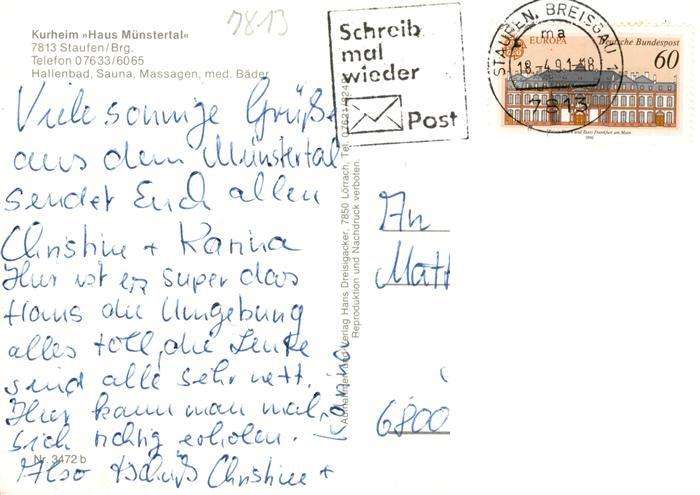 Kurheim »Haus Münstertal«
7813 Staufen/Brg.
Telefon 07633/6065
Hallenbad, Sauna, Massagen, med. Bäder
7813
Schreib
mal
wieder
Post
STAUFEN, BREISGAU 1
ma
18.-4.91-18
7813
EUROPA
Deutsche Bundespost
60
Viele sonnige Grüße
aus dem Münstertal
sendet Euch allen
Christine + Karina
Hier ist es super das
Haus die Umgebung
alles toll, die Leute
sind alle sehr nett.
Hier kann man mal
sich richtig erholen.
Also tschüß Christine +
Karina
Nr. 3472 b
Verlag Hans Dreisgacker, 7850 Lörrach, Tel. 07621/
Reproduktion und Nachdruck verboten.
An
Matt
6800